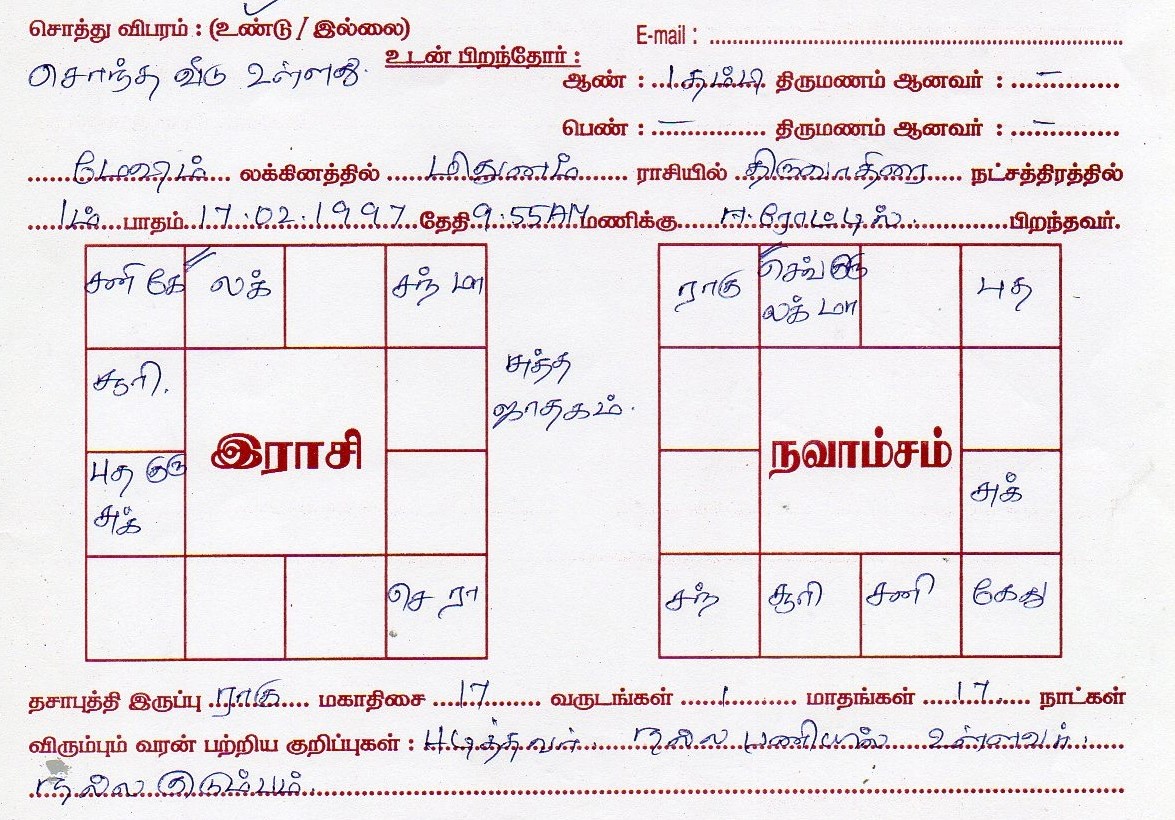 சொத்து விபரம் : (உண்டு / இல்லை)
E-mail :
சொந்த வீடு உள்ளது.
உடன் பிறந்தோர் :
ஆண் : 1 தம்பி திருமணம் ஆனவர் : –
பெண் : – திருமணம் ஆனவர் : –
மேஷம் லக்கினத்தில் மிதுனம் ராசியில் திருவாதிரை நட்சத்திரத்தில்
1ம் பாதம் 17.02.1997 தேதி 9:55AM மணிக்கு பிறந்தவர்.
சனி கே
லக்
சந் மா
சூரி.
புத குரு
சுக்
செ ரா
இராசி
சுத்த
ஜாதகம்.
ராகு
செவ் குரு
லக் மா
புத
சுக்
சந்
சூரி
சனி
கேது
நவாம்சம்
தசாபுத்தி இருப்பு ராகு மகாதிசை 17 வருடங்கள் 1 மாதங்கள் 17 நாட்கள்
விரும்பும் வரன் பற்றிய குறிப்புகள் : படித்தவர். நல்ல பணியில் உள்ளவர்.
நல்ல குடும்பம்.